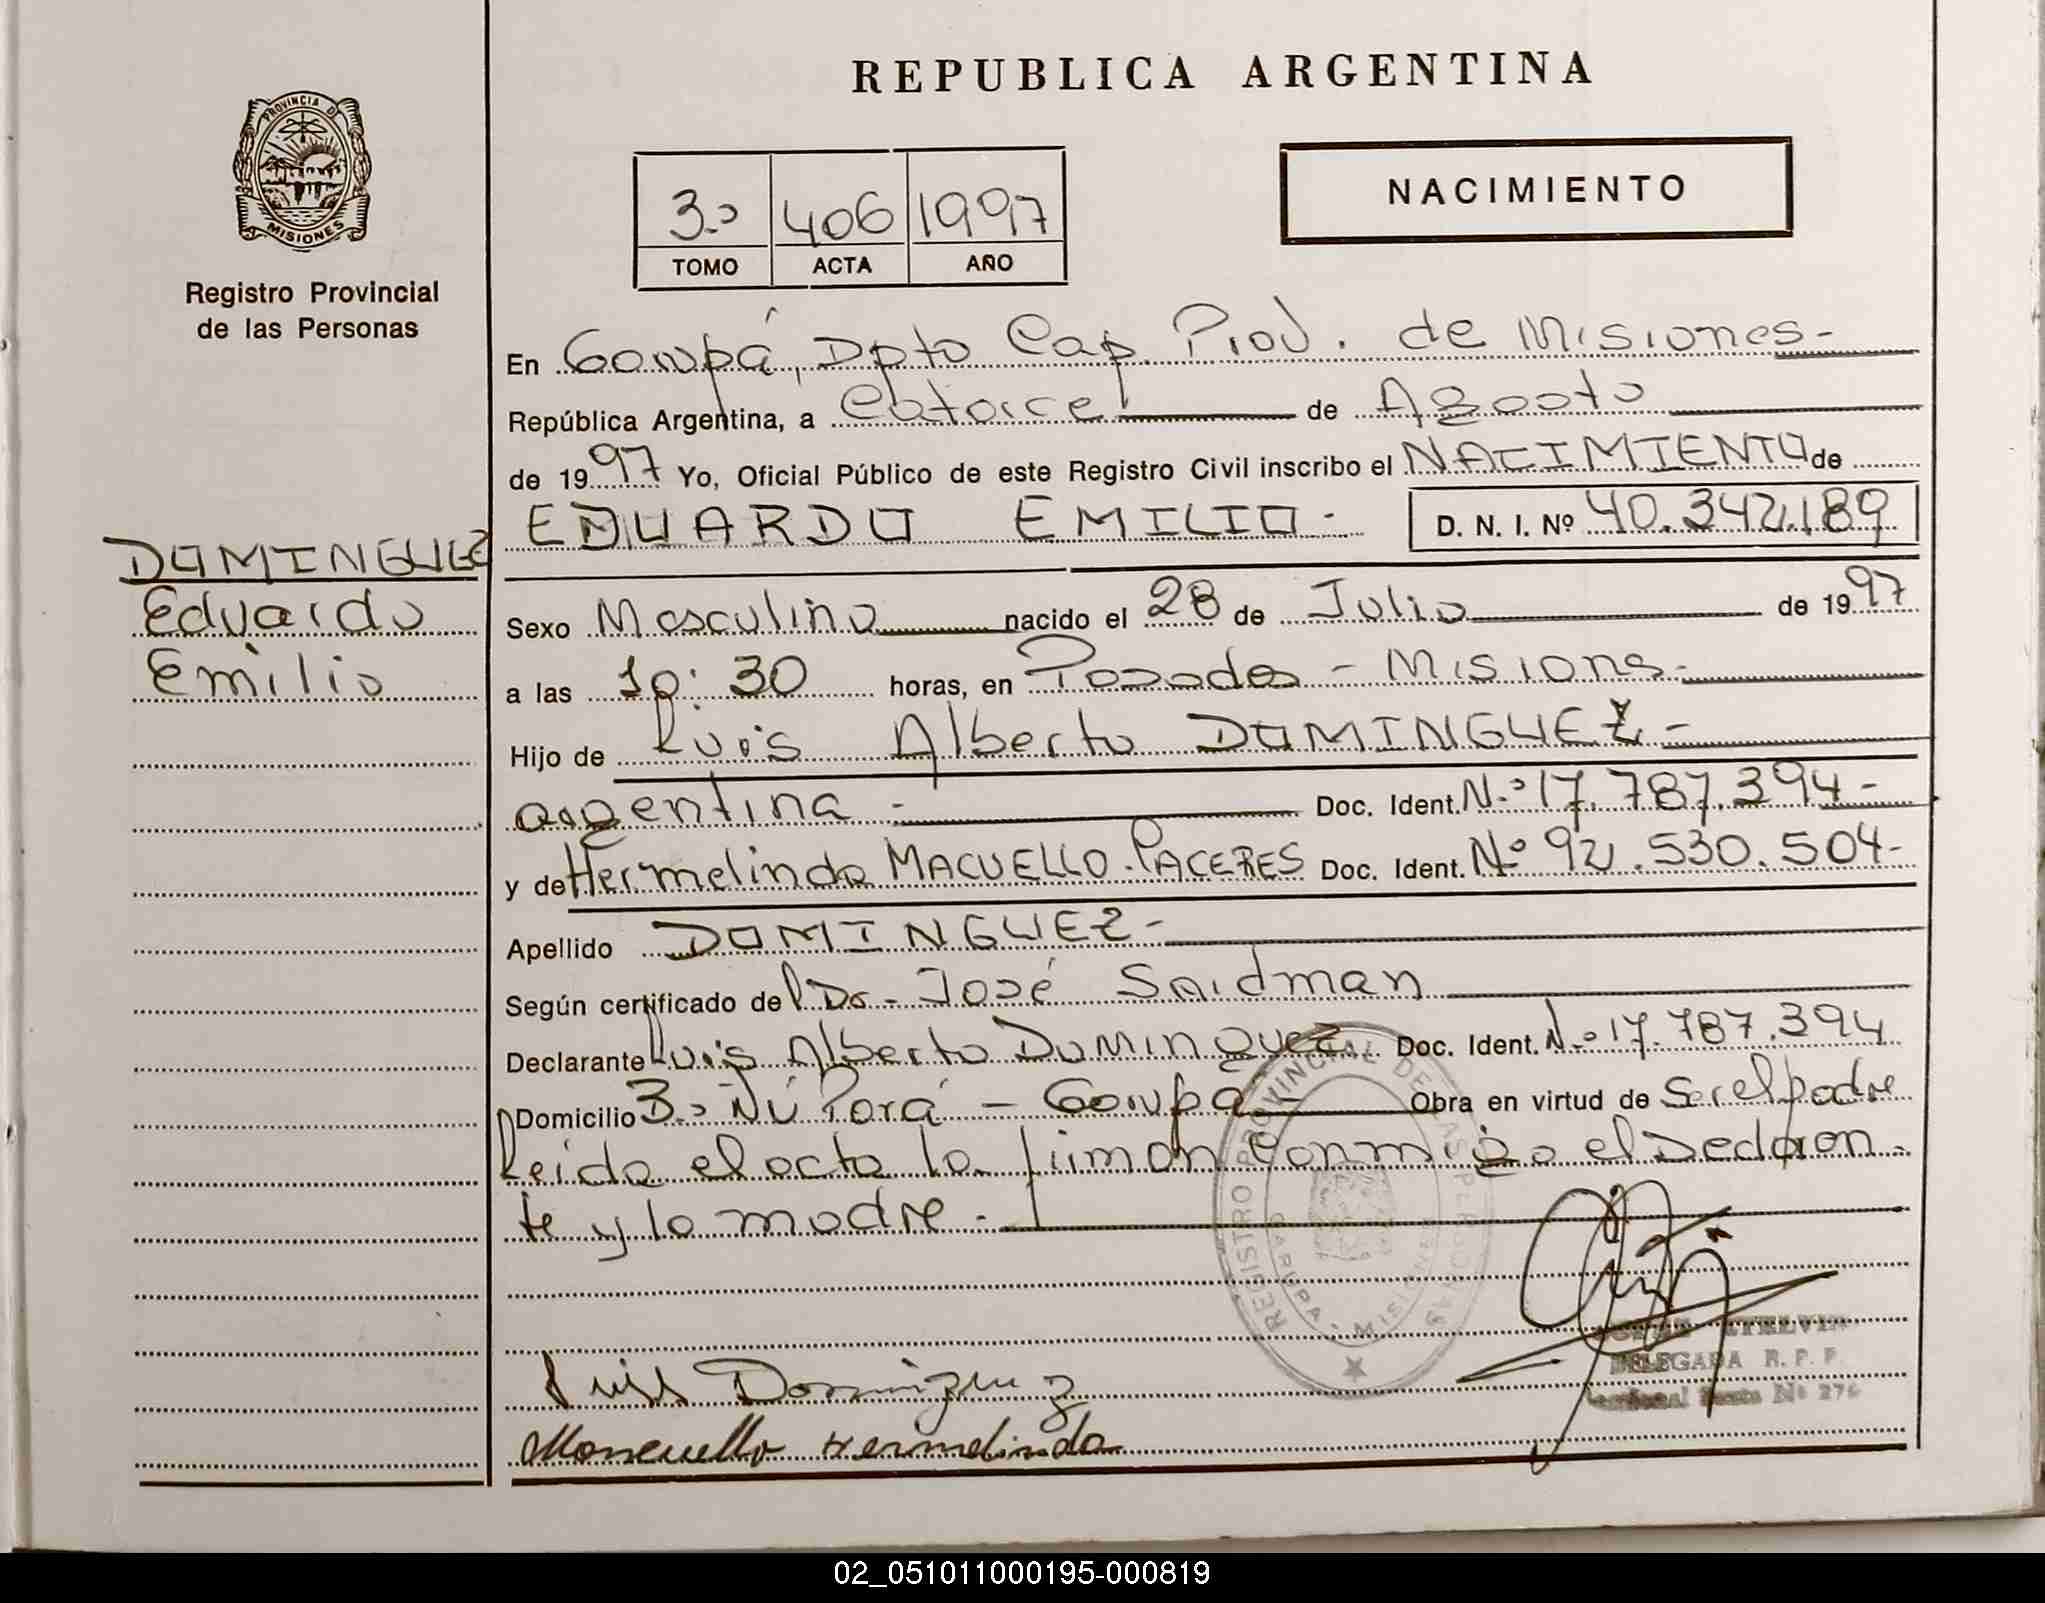 REPUBLICA ARGENTINA
PROVINCIA DE
MISIONES
Registro Provincial
de las Personas
3.º 406 1997
TOMO ACTA AÑO
NACIMIENTO
En Garupá, Dpto Cap. Prov. de Misiones-
República Argentina, a Catorce de Agosto
de 1997 Yo, Oficial Público de este Registro Civil inscribo el NACIMIENTO de
EDUARDO EMILIO- D. N. I. Nº 40.342.189
DOMINGUEZ
Eduardo
Emilio
Sexo Masculino nacido el 28 de Julio de 1997
a las 10:30 horas, en Posadas - Misions-
Hijo de Luis Alberto DOMINGUEZ-
argentina - Doc. Ident. N.º 17.787.394-
y de Hermelinda MACUELLO-PACERES Doc. Ident. Nº 92.530.504-
Apellido DOMINGUEZ-
Según certificado del Dr. José Saidman
Declarante Luis Alberto Dominguez Doc. Ident. N.º 17.787.394
Domicilio B.º Ñú Porá - Garupá- Obra en virtud de Ser el padre
Leida el acta la firman conmigo el Declaran-
te y la madre.-
REGISTRO PROVINCIAL DE LAS PERSONAS
GARUPA - MISIONES
Luis Dominguez
Moncuello Hermelinda
DELEGADA R. P. P.
02_051011000195-000819